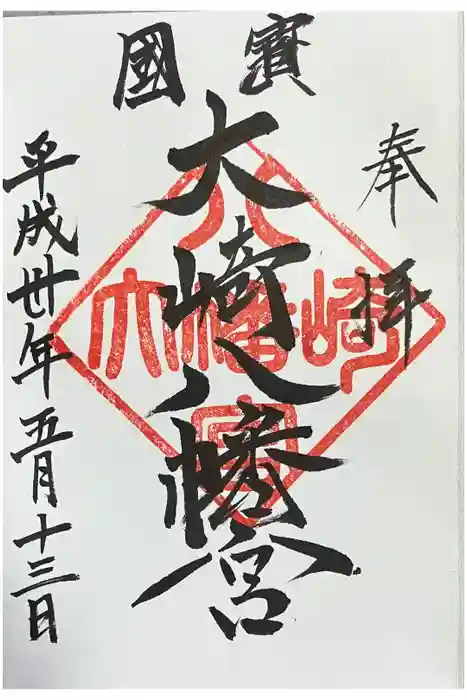 奉拝
國寳
大崎八幡宮
平成卅年五月十三日
大崎
八幡宮